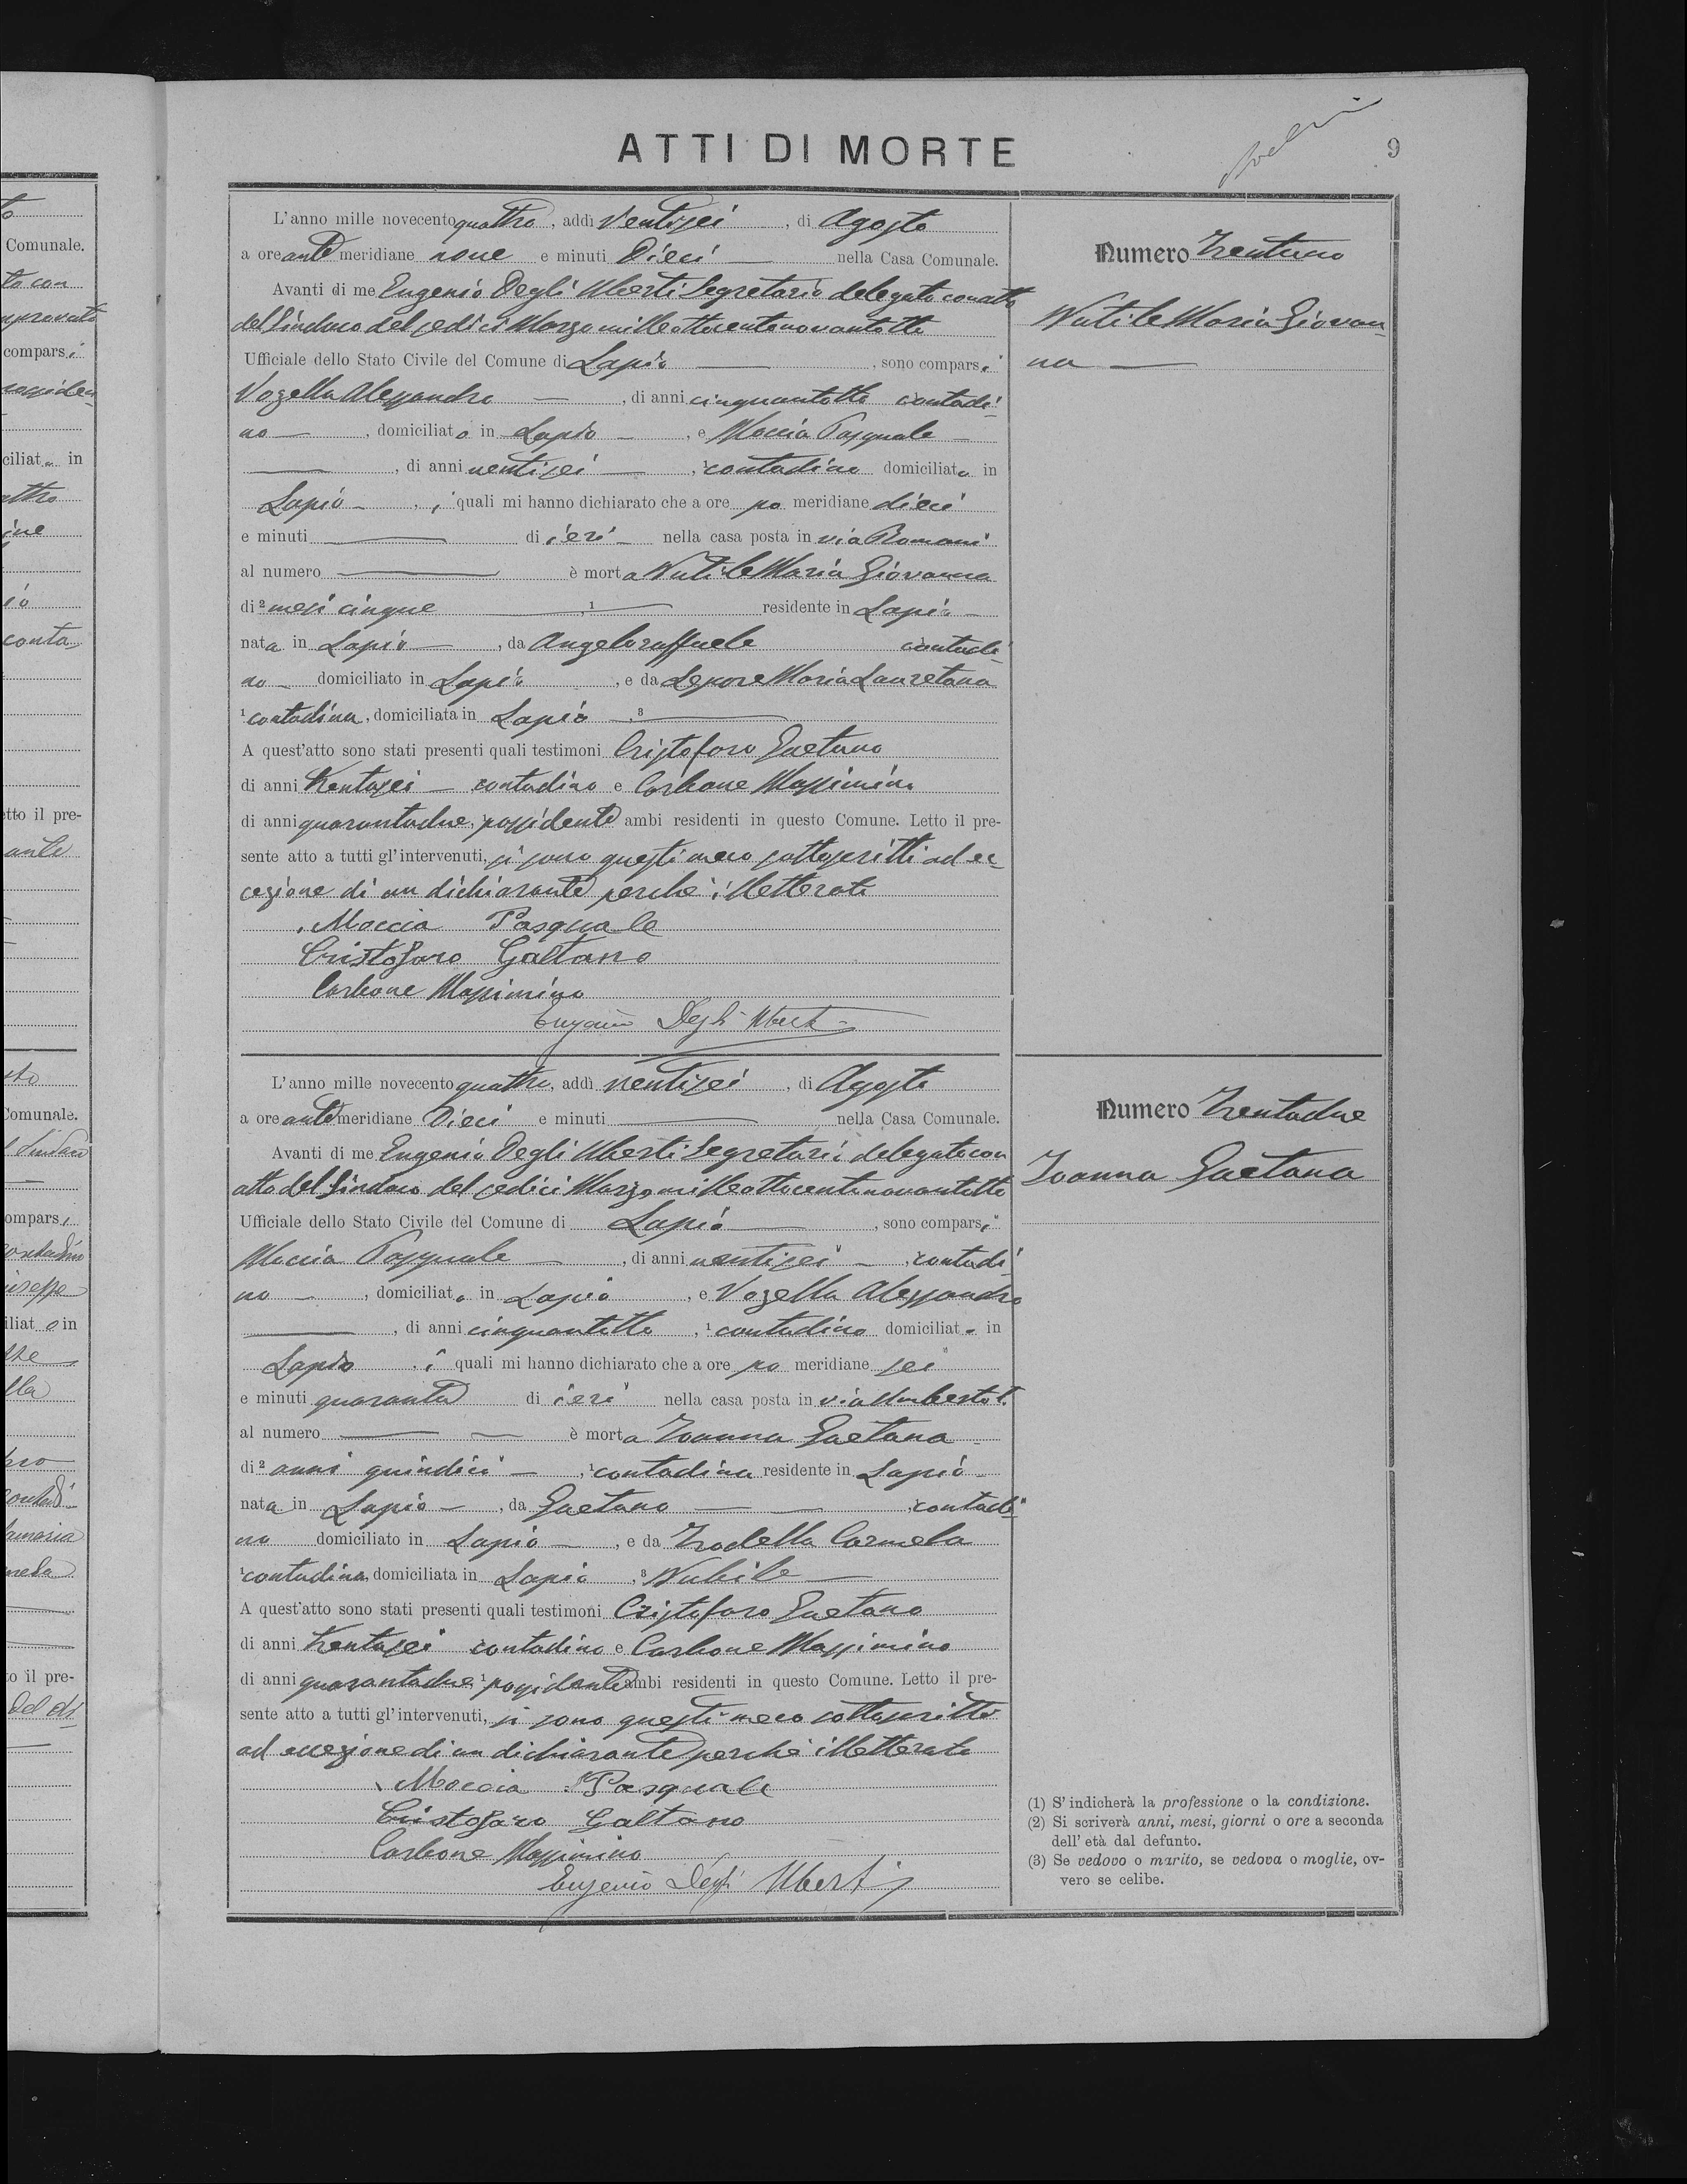 ATTI DI MORTE
9
L'anno mille novecento quattro, addì Ventisei, di Agosto
a ore ante meridiane nove e minuti Dieci nella Casa Comunale.
Avanti di me Eugenio Degli Uberti Segretario delegato con atto
del Sindaco del sedici Marzo mille ottocento novantotto
Ufficiale dello Stato Civile del Comune di Lapio, sono comparsi
Vozella Alessandro, di anni cinquantotto contadi-
no, domiciliato in Lapio, e Moccia Pasquale
, di anni ventisei, contadino domiciliato in
Lapio, i quali mi hanno dichiarato che a ore po meridiane dieci
e minuti di ieri nella casa posta in via Romani
al numero è morta Nutile Maria Giovanna
di 2 mesi cinque, 1 residente in Lapio
nata in Lapio, da Angeloraffaele contadi-
no domiciliato in Lapio, e da Lepore Maria Lauretana
1 contadina, domiciliata in Lapio, 3
A quest'atto sono stati presenti quali testimoni Cristofaro Gaetano
di anni trentasei contadino e Carbone Massimino
di anni quarantadue, possidente ambi residenti in questo Comune. Letto il pre-
sente atto a tutti gl'intervenuti, si sono questi meco sottoscritti ad ec-
cezione di un dichiarante perchè illetterato
Moccia Pasquale
Cristofaro Galtano
Carbone Massimino
Eugenio Degli Uberti
Numero Trentuno
Nutile Maria Giovan-
na
L'anno mille novecento quattro, addì ventisei, di Agosto
a ore ante meridiane Dieci e minuti nella Casa Comunale.
Avanti di me Eugenio Degli Uberti Segretario delegato con
atto del Sindaco del sedici Marzo mille ottocento novantotto
Ufficiale dello Stato Civile del Comune di Lapio, sono comparsi
Moccia Pasquale, di anni ventisei, contadi-
no, domiciliato in Lapio, e Vozella Alessandro
, di anni cinquantotto, 1 contadino domiciliato in
Lapio, i quali mi hanno dichiarato che a ore po meridiane sei
e minuti quaranta di ieri nella casa posta in via Umberto I.
al numero è morta Ioanna Gaetana
di 2 anni quindici, 1 contadina residente in Lapio
nata in Lapio, da Gaetano, contadi-
no domiciliato in Lapio, e da Trodella Carmela
1 contadina, domiciliata in Lapio, 3 Nubile
A quest'atto sono stati presenti quali testimoni Cristofaro Gaetano
di anni trentasei contadino e Carbone Massimino
di anni quarantadue, 1 possidente ambi residenti in questo Comune. Letto il pre-
sente atto a tutti gl'intervenuti, si sono questi meco sottoscritto
ad eccezione di un dichiarante perchè illetterato
Moccia Pasquale
Cristofaro Galtano
Carbone Massimino
Eugenio Degli Uberti
Numero Trentadue
Ioanna Gaetana
(1) S'indicherà la professione o la condizione.
(2) Si scriverà anni, mesi, giorni o ore a seconda
dell'età dal defunto.
(3) Se vedovo o marito, se vedova o moglie, ov-
vero se celibe.